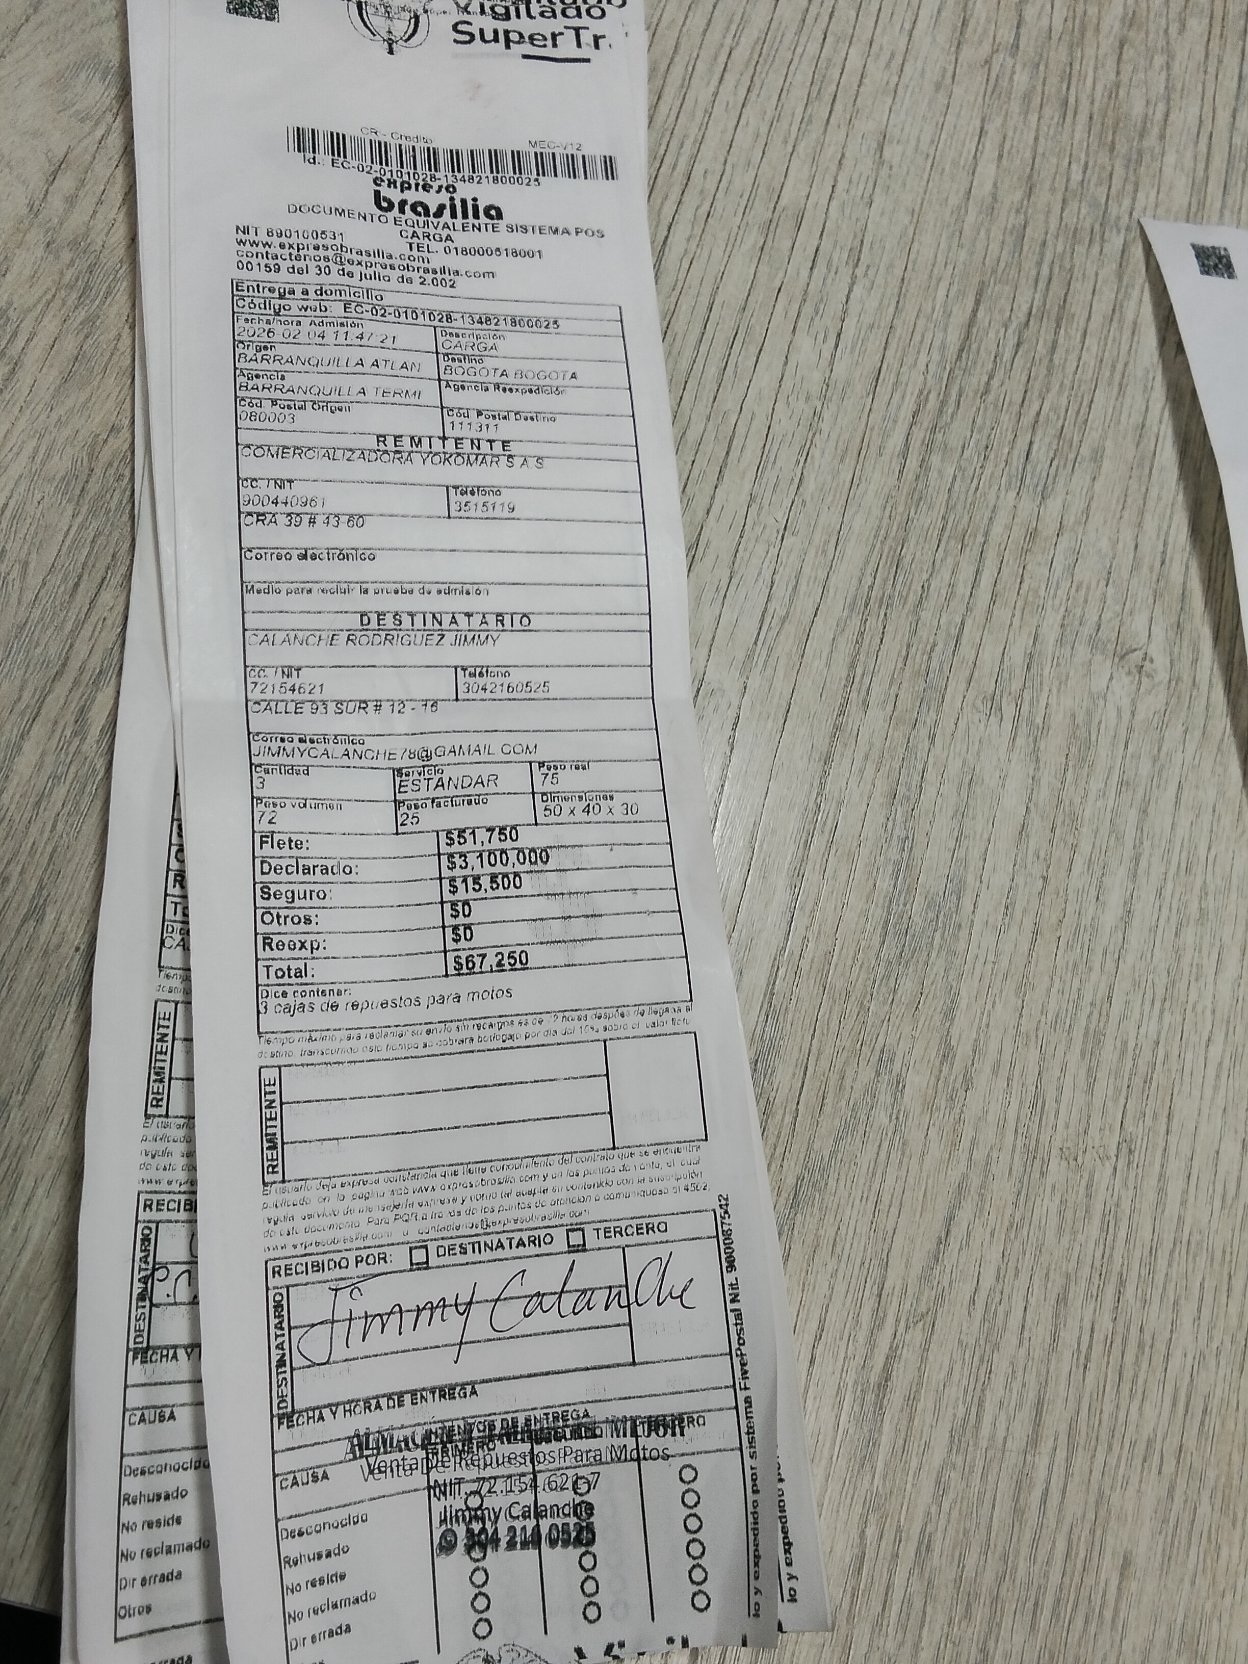 Vigilado
SuperTr
CR - Credito MEC-V12
Id.: EC-02-0101028-134821800025
expreso
brasilia
DOCUMENTO EQUIVALENTE SISTEMA POS
CARGA
NIT 890100531
TEL. 018000518001
www.expresobrasilia.com
contactenos@expresobrasilia.com
00159 del 30 de julio de 2.002
Entrega a domicilio
Código web: EC-02-0101028-134821800025
Fecha/hora Admisión Descripción
2026-02-04 11:47:21 CARGA
Origen Destino
BARRANQUILLA ATLAN BOGOTA BOGOTA
Agencia Agencia Reexpedición
BARRANQUILLA TERMI
Cód. Postal Origen Cód. Postal Destino
080003 111311
REMITENTE
COMERCIALIZADORA YOKOMAR S A S
CC. / NIT Teléfono
900440961 3515119
CRA 39 # 43-60
Correo electrónico
Medio para recibir la prueba de admisión
DESTINATARIO
CALANCHE RODRIGUEZ JIMMY
CC. / NIT Teléfono
72154621 3042160525
CALLE 93 SUR # 12 - 16
Correo electrónico
JIMMYCALANCHE78@GAMAIL.COM
Cantidad Servicio Peso real
3 ESTANDAR 75
Peso volumen Peso facturado Dimensiones
72 25 50 x 40 x 30
Flete: $51,750
Declarado: $3,100,000
Seguro: $15,500
Otros: $0
Reexp: $0
Total: $67,250
Dice contener:
3 cajas de repuestos para motos
Tiempo máximo para reclamar su envío sin recargos es de 72 horas después de llegada al
destino, transcurrido este tiempo se cobrará bodegaje por día del 10% sobre el valor flete
REMITENTE
El usuario deja expresa constancia que tiene conocimiento del contrato que se encuentra
publicado en la página web www.expresobrasilia.com y en los puntos de venta, el cual
regula servicio de mensajería expresa y como tal acepta su contenido con la suscripción
de este documento. Para PQR a través de los puntos de atención o comuniquese al 4562,
www.expresobrasilia.com o contactenos@expresobrasilia.com
RECIBIDO POR: DESTINATARIO TERCERO
DESTINATARIO
Jimmy Calanche
FECHA Y HORA DE ENTREGA
INTENTOS DE ENTREGA
PRIMERO
Venta De Repuestos Para Motos
NIT. 72.154.621-7
Jimmy Calanche
304 216 0525
CAUSA
Desconocido
Rehusado
No reside
No reclamado
Dir errada
lo y expedido por sistema FivePostal Nit. 900087542
REMITENTE
RECIB
DESTINATARIO
FECHA Y
CAUSA
Desconocido
Rehusado
No reside
No reclamado
Dir errada
Otros
lo y expedido por